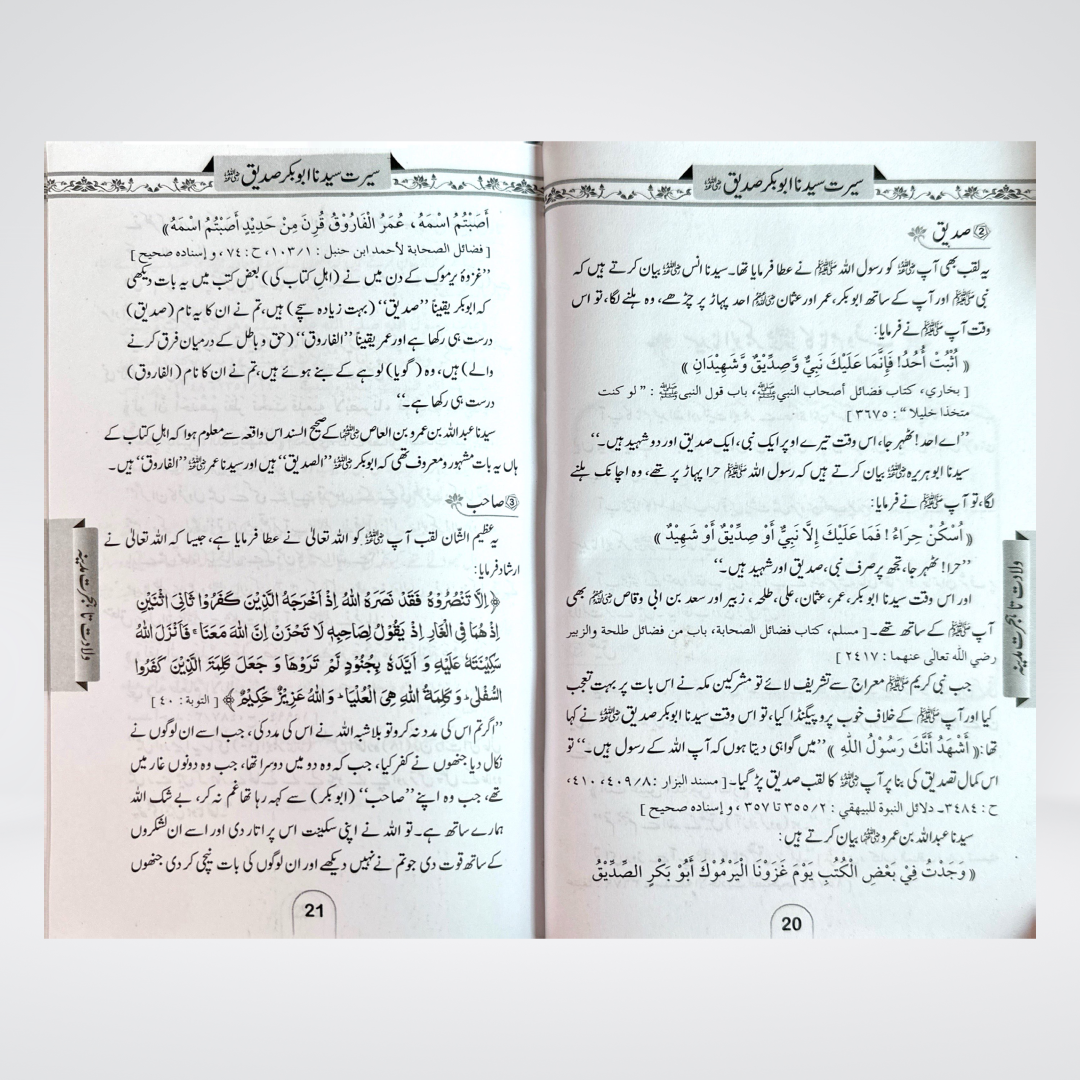 سیرت سیدنا ابوبکر صدیق رضی اللہ عنہ
② صدیق
یہ لقب بھی آپ رضی اللہ عنہ کو رسول اللہ ﷺ نے عطا فرمایا تھا۔ سیدنا انس رضی اللہ عنہ بیان کرتے ہیں کہ
نبی ﷺ اور آپ کے ساتھ ابوبکر، عمر اور عثمان رضی اللہ عنہم احد پہاڑ پر چڑھے، وہ ہلنے لگا، تو اس
وقت آپ ﷺ نے فرمایا:
« اُثْبُتْ أُحُدُ! فَإِنَّمَا عَلَيْكَ نَبِيٌّ وَّصِدِّيْقٌ وَّشَهِيْدَانِ »
[ بخاري، كتاب فضائل أصحاب النبي ﷺ، باب قول النبي ﷺ : ” لو كنت
متخذا خليلا “ : ٣٦٧٥ ]
’’اے احد! ٹھہر جا، اس وقت تیرے اوپر ایک نبی، ایک صدیق اور دو شہید ہیں۔‘‘
سیدنا ابوہریرہ رضی اللہ عنہ بیان کرتے ہیں کہ رسول اللہ ﷺ حرا پہاڑ پر تھے، وہ اچانک ہلنے
لگا، تو آپ ﷺ نے فرمایا:
« اُسْكُنْ حِرَاءُ ! فَمَا عَلَيْكَ إِلَّا نَبِيٌّ أَوْ صِدِّيْقٌ أَوْ شَهِيْدٌ »
’’حرا! ٹھہر جا، تجھ پر صرف نبی، صدیق اور شہید ہیں۔‘‘
اور اس وقت سیدنا ابوبکر، عمر، عثمان، علی، طلحہ، زبیر اور سعد بن ابی وقاص رضی اللہ عنہم بھی
آپ ﷺ کے ساتھ تھے۔ [ مسلم، كتاب فضائل الصحابة، باب من فضائل طلحة والزبير
رضي الله تعالى عنهما : ٢٤١٧ ]
جب نبی کریم ﷺ معراج سے تشریف لائے تو مشرکین مکہ نے اس بات پر بہت تعجب
کیا اور آپ ﷺ کے خلاف خوب پروپیگنڈا کیا، تو اس وقت سیدنا ابوبکر صدیق رضی اللہ عنہ نے کہا
تھا: « أَشْهَدُ أَنَّكَ رَسُوْلُ اللّٰهِ » ’’میں گواہی دیتا ہوں کہ آپ اللہ کے رسول ہیں۔‘‘ تو
اس کمال تصدیق کی بنا پر آپ رضی اللہ عنہ کا لقب صدیق پڑ گیا۔ [ مسند البزار : ٤٠٩/٨، ٤١٠،
ح : ٣٤٨٤۔ دلائل النبوة للبيهقي : ٣٥٥/٢ تا ٣٥٧ ، و إسناده صحيح ]
سیدنا عبداللہ بن عمرو رضی اللہ عنہما بیان کرتے ہیں:
« وَجَدْتُ فِيْ بَعْضِ الْكُتُبِ يَوْمَ غَزَوْنَا الْيَرْمُوْكَ أَبُوْ بَكْرٍ الصِّدِّيْقُ
20
ولادت تا ہجرت مدینہ
سیرت سیدنا ابوبکر صدیق رضی اللہ عنہ
أَصَبْتُمُ اسْمَهُ ، عُمَرُ الْفَارُوْقُ قُرِنَ مِنْ حَدِيْدٍ أَصَبْتُمُ اسْمَهُ »
[ فضائل الصحابة لأحمد ابن حنبل : ١٠٣/١، ح : ٧٤، و إسناده صحيح ]
’’غزوۂ یرموک کے دن میں نے (اہل کتاب کی) بعض کتب میں یہ بات دیکھی
کہ ابوبکر یقیناً ’’صدیق‘‘ (بہت زیادہ سچے) ہیں، تم نے ان کا یہ نام (صدیق)
درست ہی رکھا ہے اور عمر یقیناً ’’الفاروق‘‘ (حق و باطل کے درمیان فرق کرنے
والے) ہیں، وہ (گویا) لوہے کے بنے ہوئے ہیں، تم نے ان کا نام (الفاروق)
درست ہی رکھا ہے۔‘‘
سیدنا عبداللہ بن عمرو بن العاص رضی اللہ عنہما کے صحیح السند اس واقعہ سے معلوم ہوا کہ اہل کتاب کے
ہاں یہ بات مشہور و معروف تھی کہ ابوبکر رضی اللہ عنہ ’’الصدیق‘‘ ہیں اور سیدنا عمر رضی اللہ عنہ ’’الفاروق‘‘ ہیں۔
③ صاحب
یہ عظیم الشّان لقب آپ رضی اللہ عنہ کو اللہ تعالیٰ نے عطا فرمایا ہے، جیسا کہ اللہ تعالیٰ نے
ارشاد فرمایا:
﴿ اِلَّا تَنْصُرُوْهُ فَقَدْ نَصَرَهُ اللّٰهُ اِذْ اَخْرَجَهُ الَّذِيْنَ كَفَرُوْا ثَانِيَ اثْنَيْنِ
اِذْ هُمَا فِي الْغَارِ اِذْ يَقُوْلُ لِصَاحِبِهٖ لَا تَحْزَنْ اِنَّ اللّٰهَ مَعَنَا ۚ فَاَنْزَلَ اللّٰهُ
سَكِيْنَتَهٗ عَلَيْهِ وَ اَيَّدَهٗ بِجُنُوْدٍ لَّمْ تَرَوْهَا وَ جَعَلَ كَلِمَةَ الَّذِيْنَ كَفَرُوا
السُّفْلٰى ؕ وَ كَلِمَةُ اللّٰهِ هِيَ الْعُلْيَا ؕ وَ اللّٰهُ عَزِيْزٌ حَكِيْمٌ ﴾ [ التوبة : ٤٠ ]
’’اگر تم اس کی مدد نہ کرو تو بلاشبہ اللہ نے اس کی مدد کی، جب اسے ان لوگوں نے
نکال دیا جنھوں نے کفر کیا، جب کہ وہ دو میں دوسرا تھا، جب وہ دونوں غار میں
تھے، جب وہ اپنے ’’صاحب‘‘ (ابوبکر) سے کہہ رہا تھا غم نہ کر، بے شک اللہ
ہمارے ساتھ ہے۔ تو اللہ نے اپنی سکینت اس پر اتار دی اور اسے ان لشکروں
کے ساتھ قوت دی جو تم نے نہیں دیکھے اور ان لوگوں کی بات نیچی کر دی جنھوں
21
ولادت تا ہجرت مدینہ